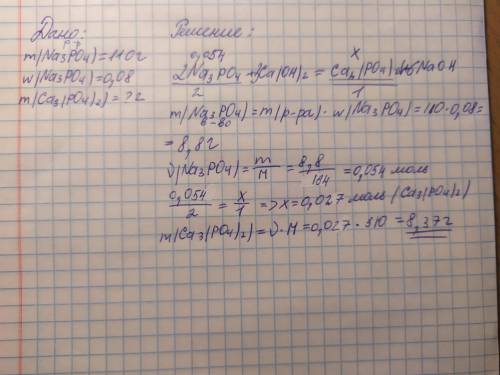 Дано:
р-р
m(Na3PO4)=110г
w(Na3PO4)=0,08
m(Ca3(PO4)2)=?г
Решение:
0,054 x
2Na3PO4+3Ca(OH)2=Ca3(PO4)2+6NaOH
2 1
m(Na3PO4)=m(р-ра)·w(Na3PO4)=110·0,08=
в-во
=8,8г
ν(Na3PO4)=m/M=8,8/164=0,054 моль
0,054/2=x/1=>x=0,027 моль(Ca3(PO4)2)
m(Ca3(PO4)2)=ν·M=0,027·310=8,37г